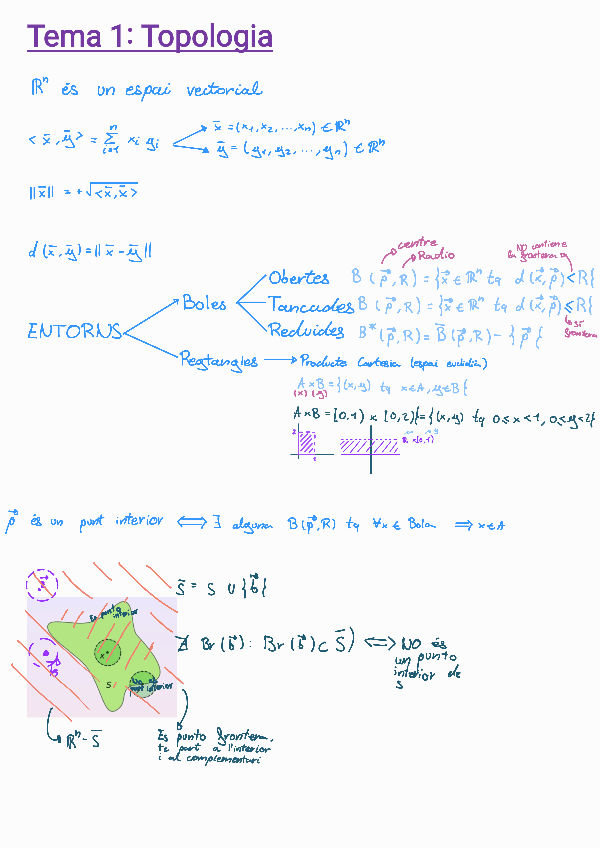 Tema 1: Topologia
ℝⁿ és un espai vectorial
<x̄, ȳ> = Σ_{i=1}^{n} xᵢ yᵢ
x̄ = (x₁, x₂, ..., xₙ) ∈ ℝⁿ
ȳ = (y₁, y₂, ..., yₙ) ∈ ℝⁿ
||x̄|| = +√<x̄, x̄>
d(x̄, ȳ) = ||x̄ - ȳ||
centre
Radio
NO contiene
la frontera
Obertes B(p⃗, R) = {x⃗ ∈ ℝⁿ tq d(x⃗, p⃗) < R}
Boles
Tancades B(p⃗, R) = {x⃗ ∈ ℝⁿ tq d(x⃗, p⃗) ≤ R}
sí
frontera
ENTORNS
Reduides B*(p⃗, R) = B̄(p⃗, R) - {p⃗}
Regtangles → Producte Cartesià (espai euclidià)
A×B = {(x, y) tq x∈A, y∈B}
(x) (y)
A×B = [0,1) × [0,2) = {(x,y) tq 0≤x<1, 0≤y<2}
2
1
ℝ×[0,1)
p⃗ és un punt interior ⟺ ∃ alguna B(p⃗, R) tq ∀x ∈ Bola ⟹ x∈A
S̄ = S ∪ {b⃗}
Es punto
interior
∄ Br(b⃗) : Br(b⃗) ⊂ S̄) ⟺ NO és
un punto
interior de
S
x
S
No es
punt interior
ℝⁿ - S̄
Es punto frontera,
te part a l'interior
i al complementari